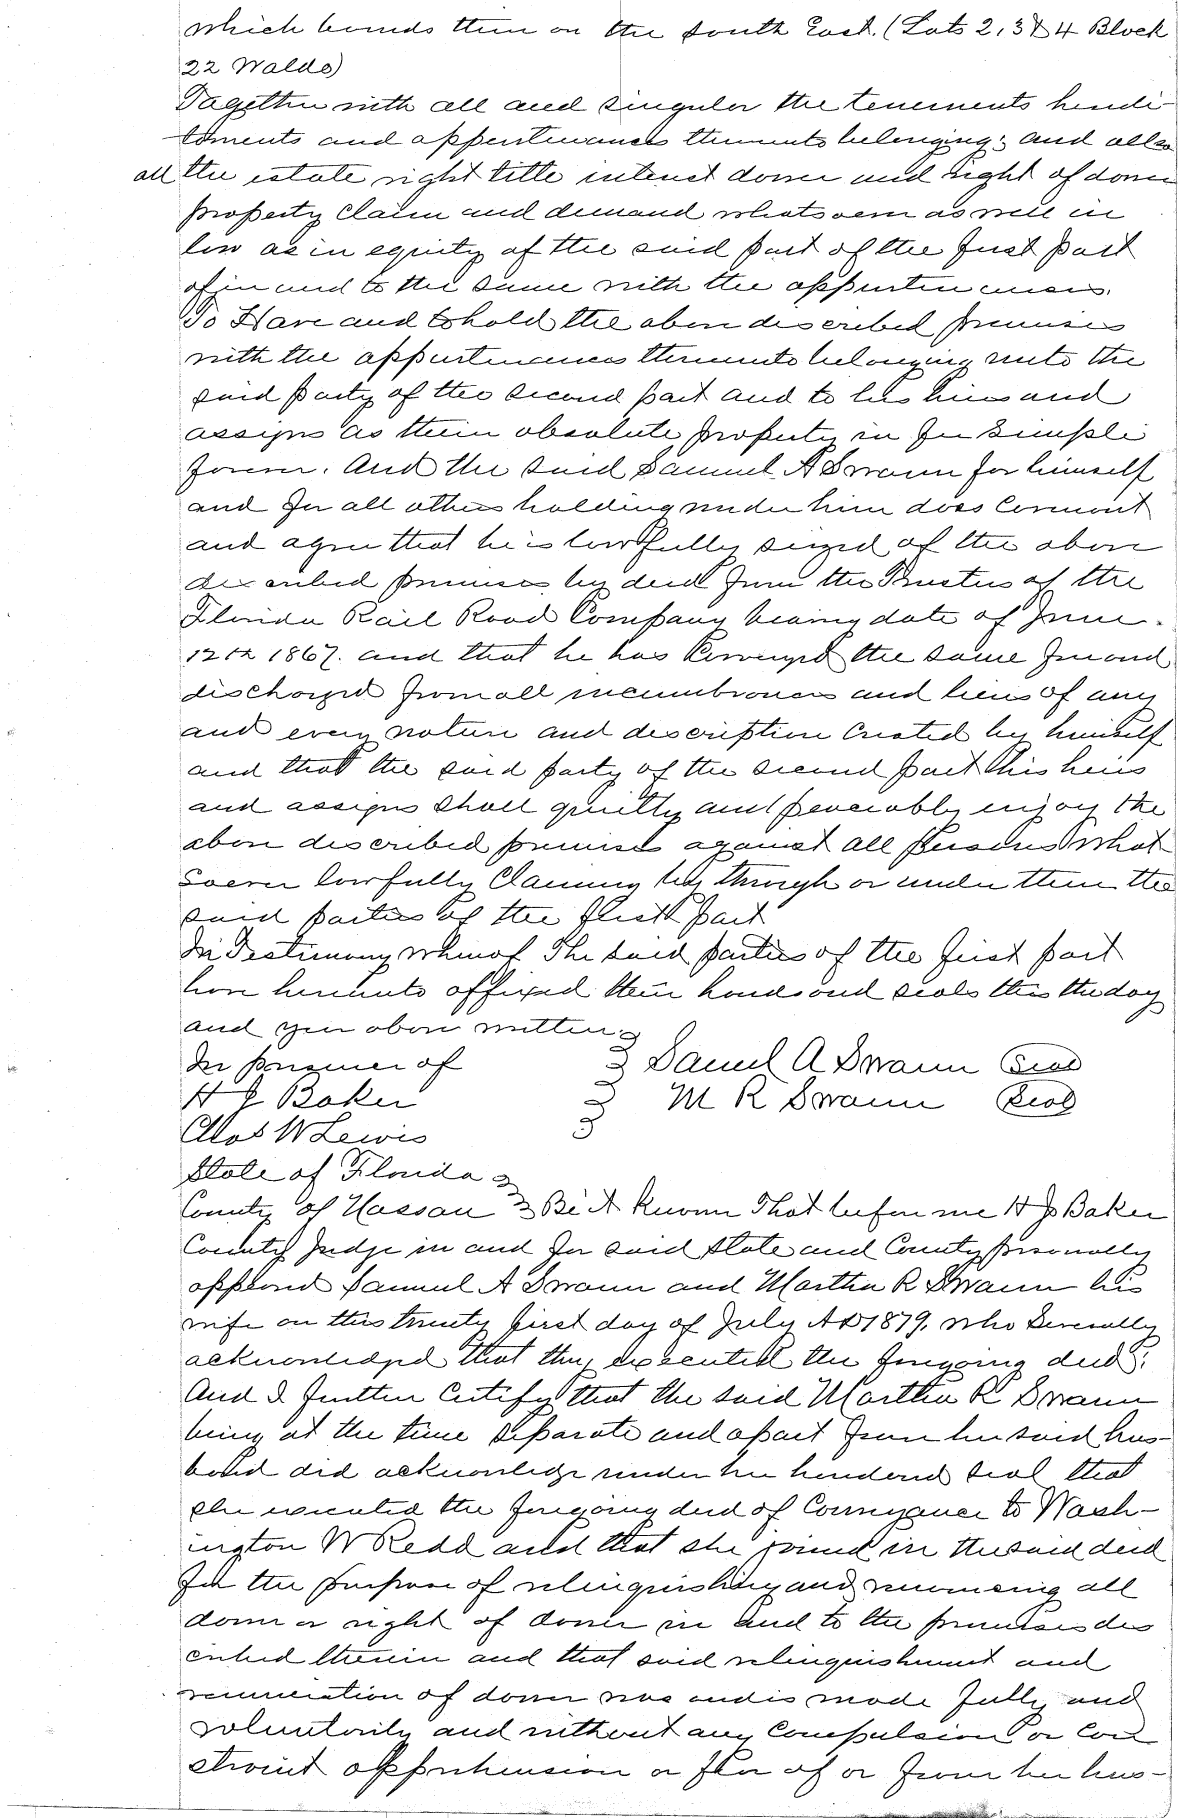 which bounds them on the south East. (Lots 2, 3 & 4 Block
22 Waldo)
Together with all and singular the tenements heridi-
taments and appurtenances thereunto belonging; and also
all the estate right title interest dower and right of dower
property claim and demand whatsoever as well in
law as in equity of the said part of the first part
of in and to the same with the appurtenances.
To Have and to hold the above described premises
with the appurtenances thereunto belonging unto the
said party of the second part and to his heirs and
assigns as their absolute property in fee simple
forever. And the said Samuel A Swann for himself
and for all others holding under him does Covenant
and agree that he is lawfully seized of the above
described premises by deed from the Trustees of the
Florida Rail Road Company bearing date of June
12th 1867. and that he has Conveyed the same free and
discharged from all incumbrances and liens of any
and every nature and description Created by himself
and that the said party of the second part & his heirs
and assigns shall quietly and peaceably enjoy the
above described premises against all persons what
soever lawfully Claiming by through or under them the
said parties of the first part
In Testimony whereof The said parties of the first part
have hereunto affixed their hands and seals this the day
and year above written
In presence of Samuel A Swann Seal
H J Baker M R Swann Seal
Chas W Lewis
State of Florida
County of Nassau Be it Known That before me H J Baker
County Judge in and for said State and County personally
appeared Samuel A Swann and Martha R Swann his
wife on this twenty first day of July AD 1879. who Severally
acknowledged that they executed the foregoing deed.
And I further Certify that the said Martha R Swann
being at the time separate and apart from her said hus-
band did acknowledge under her hand and seal that
she executed the foregoing deed of Conveyance to Wash-
ington W Redd and that she joined in the said deed
for the purpose of relinquishing and renouncing all
dower or right of dower in and to the premises des
cribed therein and that said relinquishment and
renunciation of dower was and is made fully and
voluntarily and without any Compulsion or Con
straint apprehension or fear of or from her hus-